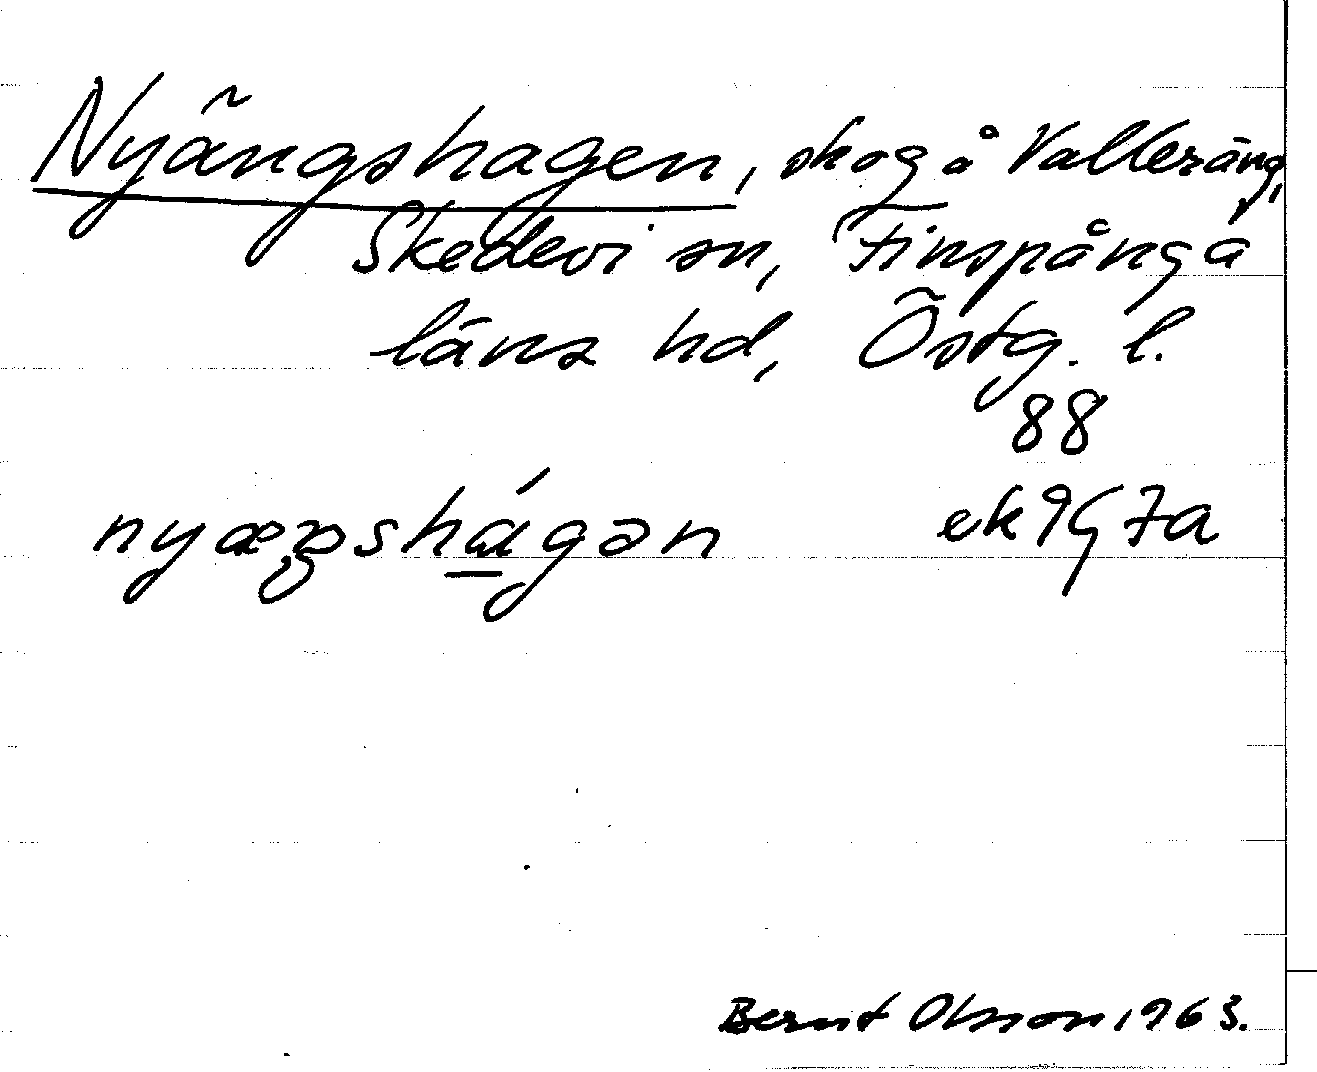 Nyängshagen, skog å Valleräng,
Skedevi sn, Finspånga
läns hd, Östg. l.
88
ek 9G 7a
Bernt Olsson, 1963.